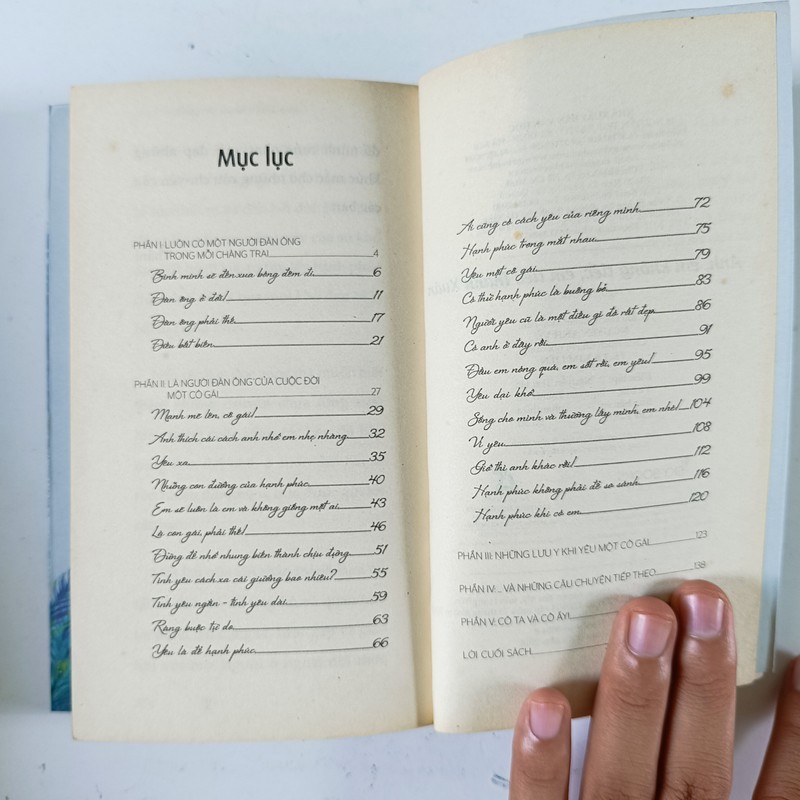 Mục lục
PHẦN I: LUÔN CÓ MỘT NGƯỜI ĐÀN ÔNG
TRONG MỖI CHÀNG TRAI 4
Bình minh sẽ đến xua bóng đêm đi 6
Đàn ông ở đời! 11
Đàn ông phải thế 17
Dẫu bất biến 21
PHẦN II: LÀ NGƯỜI ĐÀN ÔNG CỦA CUỘC ĐỜI
MỘT CÔ GÁI 27
Mạnh mẽ lên, cô gái! 29
Anh thích cái cách anh nhớ em nhẹ nhàng 32
Yêu xa 35
Những con đường của hạnh phúc 40
Em sẽ luôn là em và không giống một ai 43
Là con gái, phải thế! 46
Đừng để nhớ nhung biến thành chịu đựng 51
Tình yêu cách xa cái giường bao nhiêu? 55
Tình yêu ngắn - tình yêu dài 59
Ràng buộc tự do 63
Yêu là để hạnh phúc 66
Ai cũng có cách yêu của riêng mình 72
Hạnh phúc trong mắt nhau 75
Yêu một cô gái 79
Có thứ hạnh phúc là buông bỏ 83
Người yêu cũ là một điều gì đó rất đẹp 86
Có anh ở đây rồi 91
Đầu em nóng quá, em sốt rồi, em yêu! 95
Yêu dại khờ 99
Sống cho mình và thương lấy mình, em nhé! 104
Vì yêu 108
Giờ thì anh khác rồi! 112
Hạnh phúc không phải để so sánh 116
Hạnh phúc khi có em 120
PHẦN III: NHỮNG LƯU Ý KHI YÊU MỘT CÔ GÁI 123
PHẦN IV: .. VÀ NHỮNG CÂU CHUYỆN TIẾP THEO 138
PHẦN V: CÔ TA VÀ CÔ ẤY!
LỜI CUỐI SÁCH